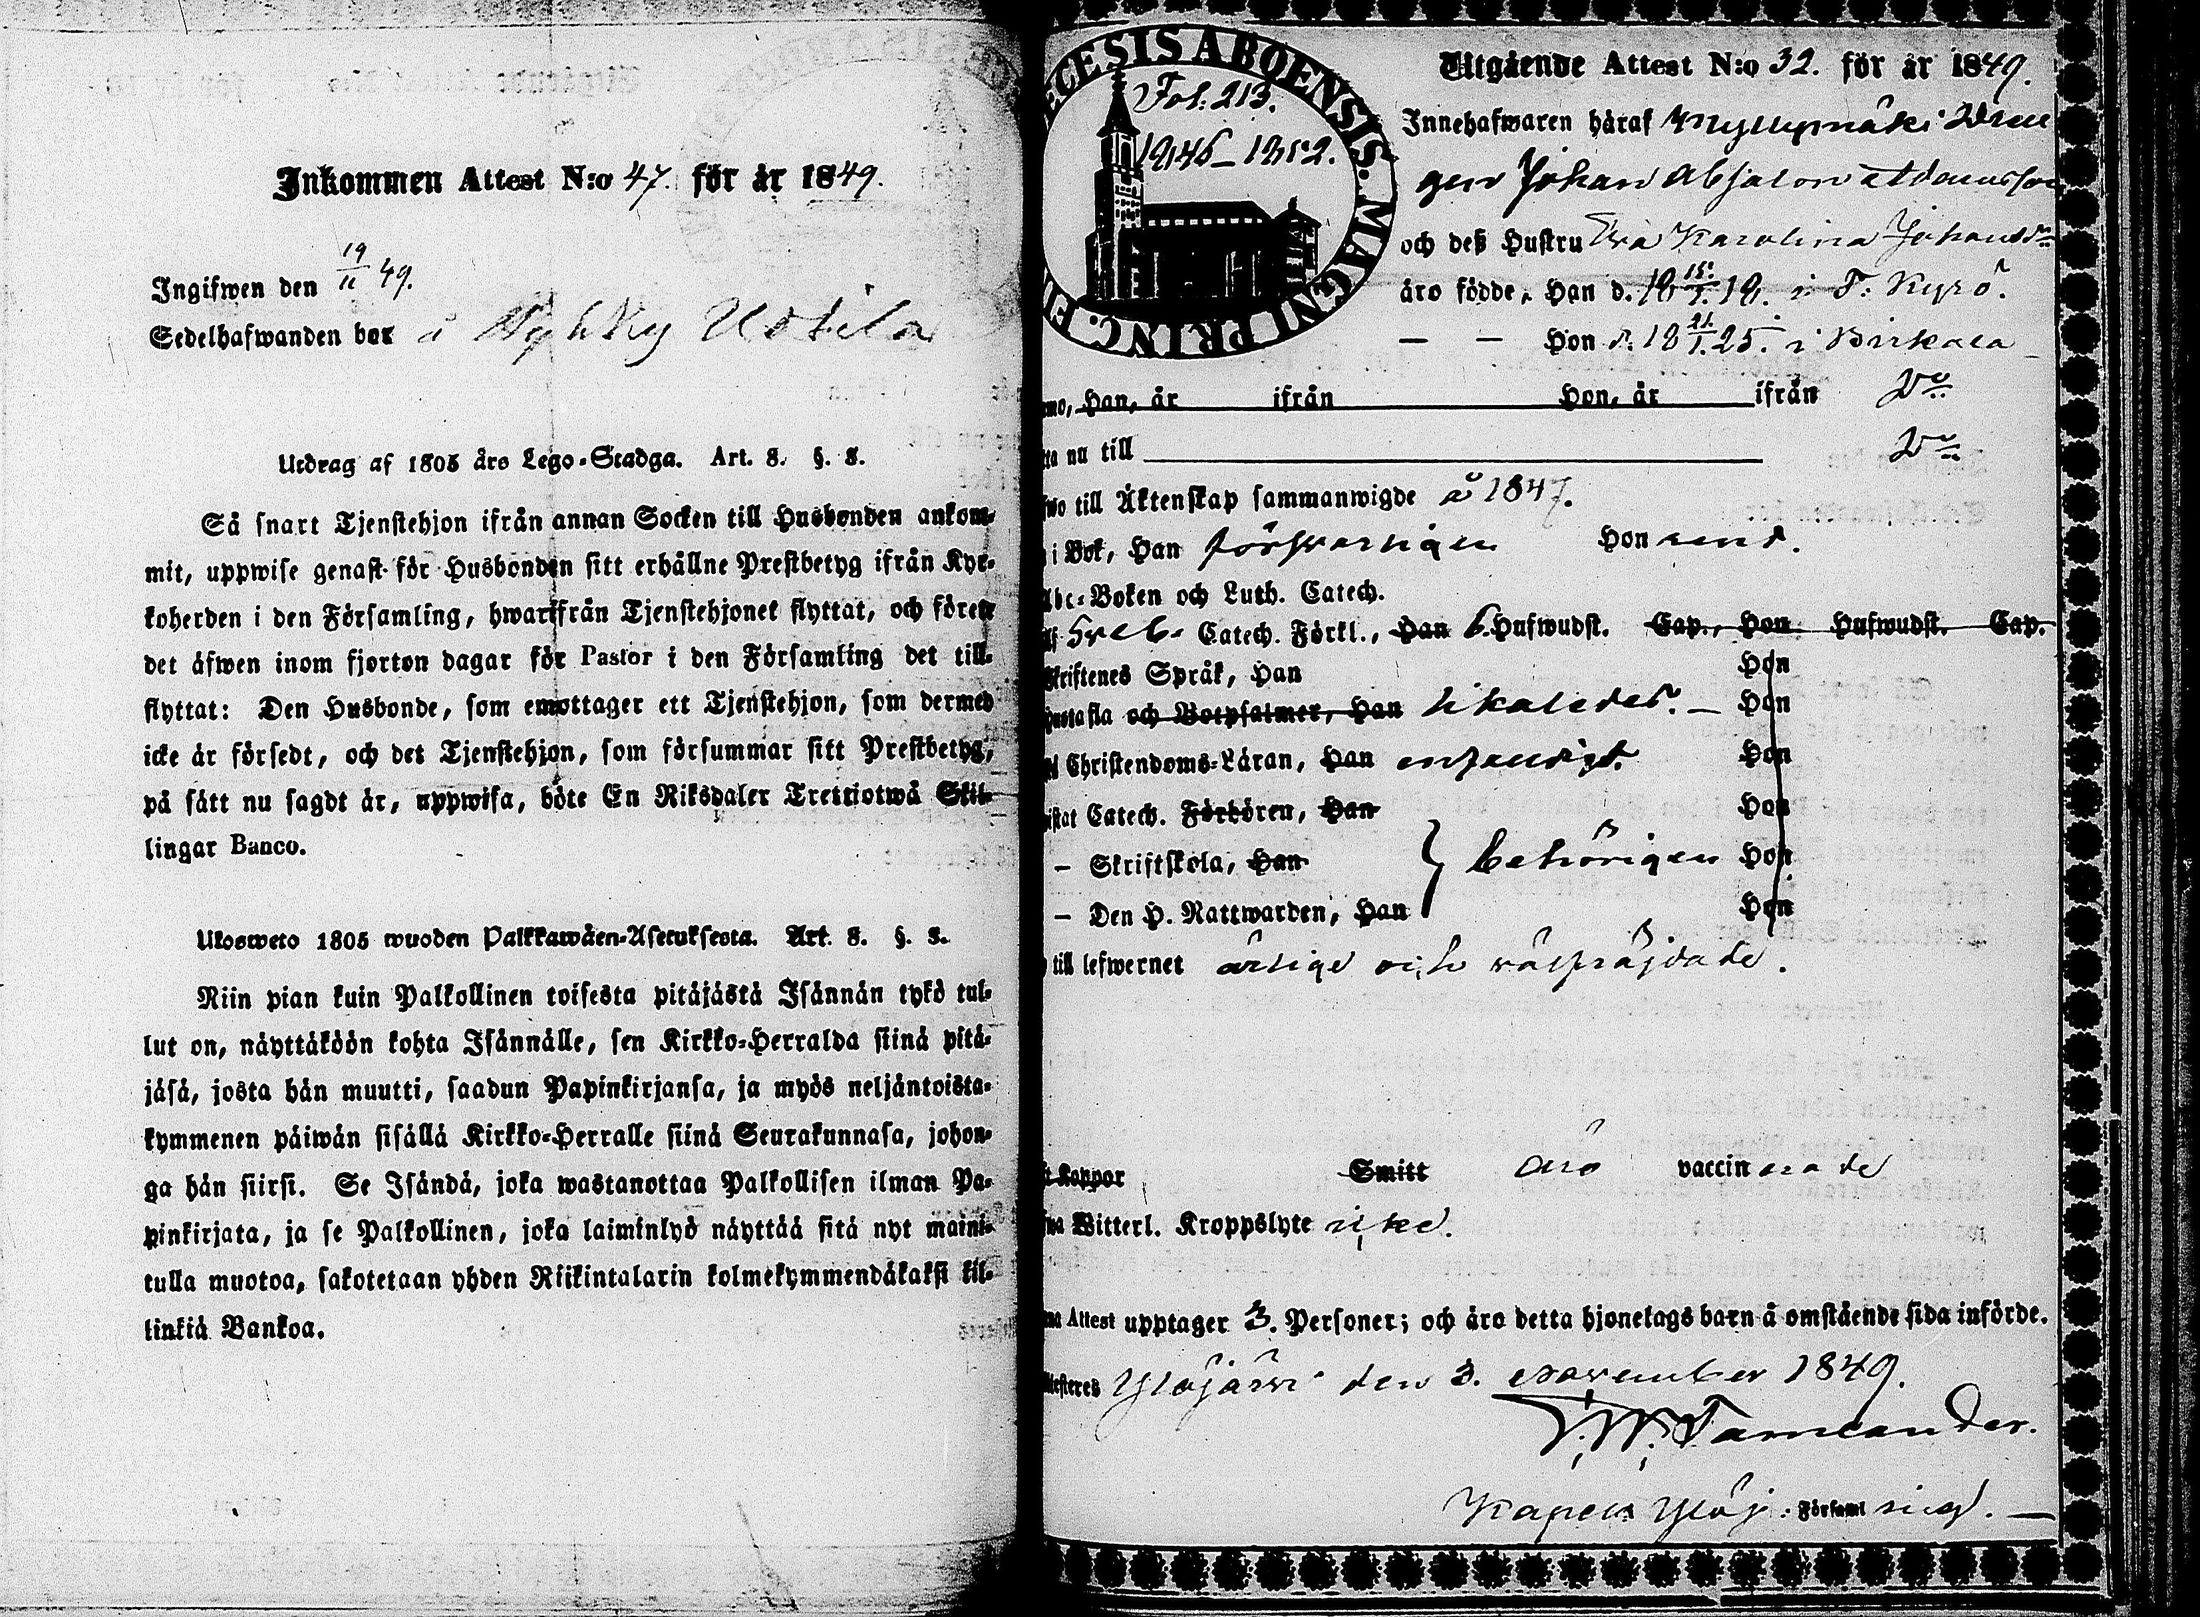 Inkommen Attest N:o 47. för år 1849.
Ingifwen den 19/11 49.
Sedelhafwanden bor å Kyhky Uotila
Utdrag af 1805 års Lego-Stadga. Art. 8. §. 8.
Så snart Tjenstehjon ifrån annan Socken till Husbonden ankom-
mit, uppwise genast för Husbonden sitt erhållne Prestbetyg ifrån Kyr-
koherden i den Församling, hwarifrån Tjenstehjonet flyttat, och förete
det äfwen inom fjorton dagar för Pastor i den Församling det till-
flyttat: Den Husbonde, som emottager ett Tjenstehjon, som dermed
icke är försedt, och det Tjenstehjon, som försummar sitt Prestbetyg,
på sätt nu sagdt är, uppwisa, böte En Riksdaler Trettiotwå Skil-
lingar Banco.
Ulosweto 1805 wuoden Palkkawäen-Asetuksesta. Art. 8. §. 8.
Niin pian kuin Palkollinen toisesta pitäjästä Isännän tykö tul-
lut on, näyttäköön kohta Isännälle, sen Kirkko-Herralda siinä pitä-
jäsä, josta hän muutti, saadun Papinkirjansa, ja myös neljäntoista-
kymmenen päiwän sisällä Kirkko-Herralle siinä Seurakunnasa, johon-
ga hän siirsi. Se Isändä, joka wastanottaa Palkollisen ilman Pa-
pinkirjata, ja se Palkollinen, joka laiminlyö näyttää sitä nyt maini-
tulla muotoa, sakotetaan yhden Riikintalarin kolmekymmendäkaksi kil-
linkiä Bankoa.
ECESIS ABOENSIS. MAGNI PRINC.
Fol. 213.
1846-1852.
Utgående Attest N:o 32. för år 1849.
Innehafwaren häraf Myllymäki Dren
gen Johan Absalon Adamsson
och deß Hustru Eva Karolina Johansdr
äro födde, Han d. 18 15/1. 18. i T. Kyrö.
— — Hon d. 18 21/1. 25. i Birkala
mo, Han, är ifrån Hon, är ifrån Do
ra nu till Do
wo till Äktenskap sammanwigde å 1847.
i Bok, Han försvarligen Hon
Abc-Boken och Luth. Catech.
Sveb. Catech. Förkl., Han 6. Hufwudst. Cap., Hon Hufwudst. Cap.
kriftenes Språk, Han Hon
hustafla och Botpsalmer, Han likaledes. — Hon
Christendoms-Läran, Han enfaldigt. Hon
istat Catech. Förhören, Han Hon
— Skriftskola, Han } behörigen Hon
— Den H. Nattwarden, Han Hon
till lefwernet ärlige och wälfräjdade.
Koppor Smitt äro vaccinerade
Witterl. Kroppslyte icke.
na Attest upptager 3. Personer; och äro detta hjonelags barn å omstående sida införde.
ttesteres Ylöjärwi den 3. November 1849.
F. W. Tamlander.
Kapell Ylöj. Församl ing. —